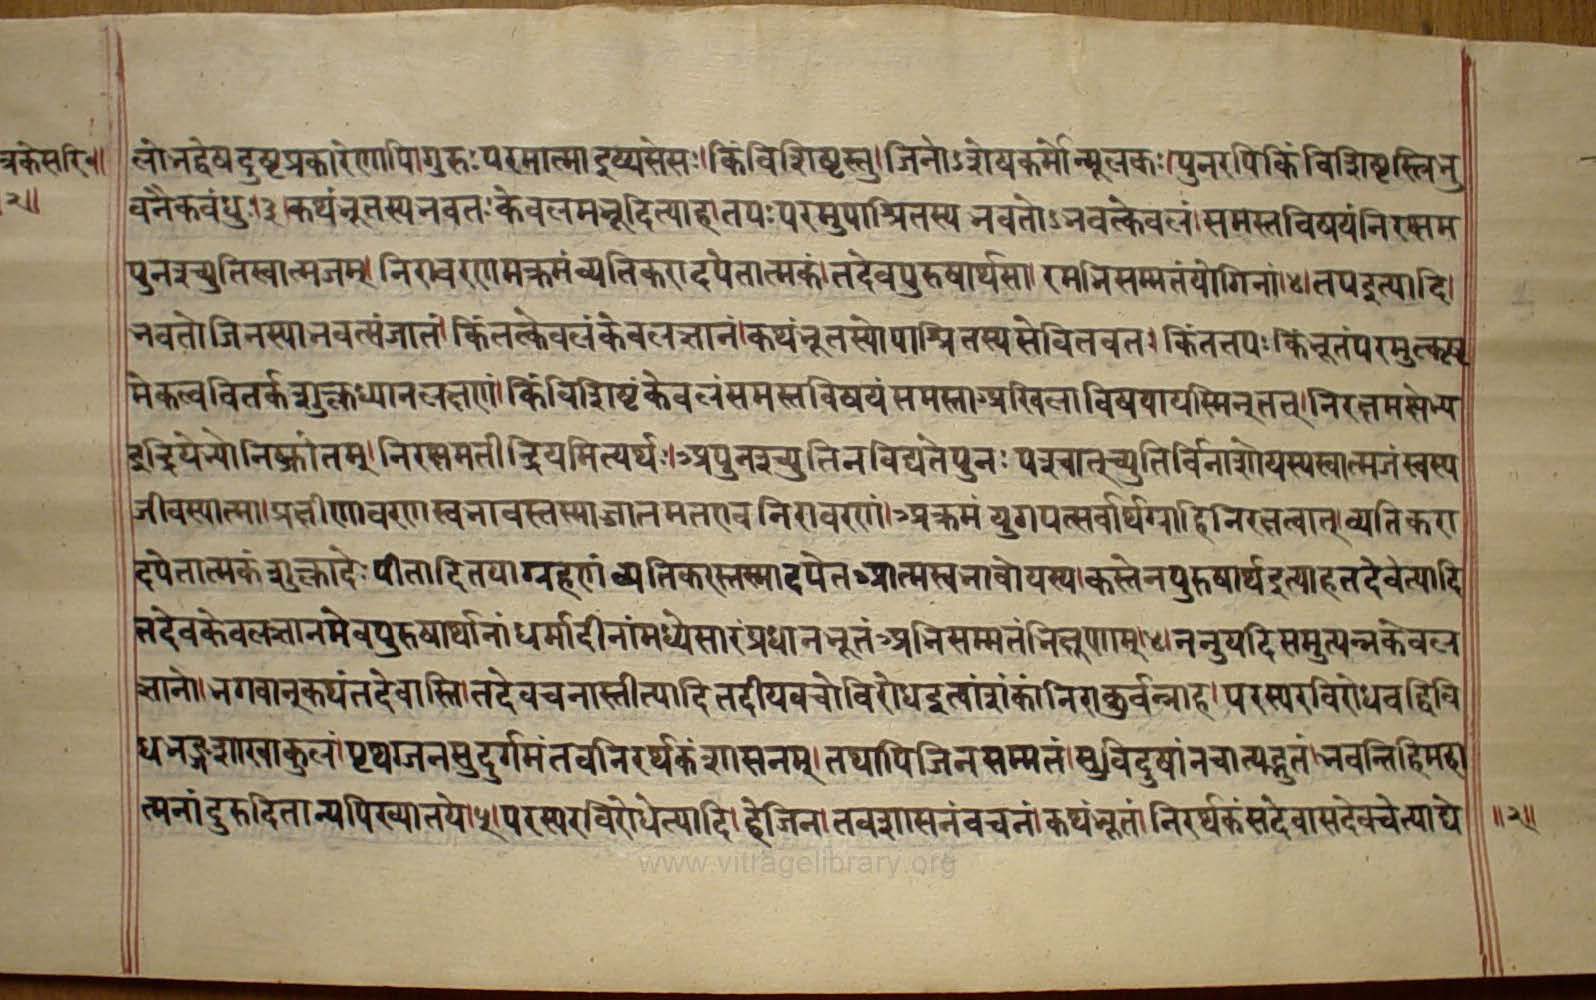 त्रकेसरि॥
२॥
लोनद्वेषदुष्टप्रकारेणापि।गुरुःपरमात्मादूष्यसेसः।किंविशिष्टस्त्व।जिनोऽशेषकर्मोन्मूलकः।पुनरपिकिंविशिष्टस्त्रिभु
वनैकबंधुः।३।कथंभूतस्यभवतःकेवलमभूदित्याह।तपःपरमुपाश्रितस्य भवतोऽभवत्केवलं।समस्तविषयंनिरक्षम
पुनश्च्युतिस्वात्मजम्। निरावरणमक्रमंव्यतिकरादपेतात्मकं।तदेवपुरुषार्थसा। रमभिसम्मतंयोगिनां।४।तपइत्यादि।
भवतोजिनस्याभवत्संजातं।किंतत्केवलंकेवलज्ञानं।कथंभूतस्योपाश्रितस्यसेवितवतः।किंतत्तपःकिंभूतंपरमुत्कृष्ट
मेकत्ववितर्कशुक्लध्यानलक्षणं।किंविशिष्टंकेवलंसमस्तविषयंसमस्ताअखिलाविषयायस्मिन्तत्।निरक्षमक्षेभ्य
इंद्रियेभ्योनिष्क्रांतम्।निरक्षमतीन्द्रियमित्यर्थः।अपुनश्च्युतिनविद्यतेपुनःपश्चात्च्युतिर्विनाशोयस्यस्वात्मजंस्वस्य
जीवस्यात्मा।प्रक्षीणावरणस्वभावस्तस्माज्जातमतएवनिरावरणं।अक्रमंयुगपत्सर्वार्थग्राहिनिरक्षत्वात्।व्यतिकरा
दपेतात्मकंशुक्लादेःपीतादितयाग्रहणंव्यतिकरस्तस्मादपेतआत्मस्वभावोयस्य।कस्तेनपुरुषार्थइत्याहतदेवेत्यादि
तदेवकेवलज्ञानमेवपुरुषार्थानांधर्मादीनांमध्येसारंप्रधानभूतंअभिसम्मतंभिक्षूणाम्।४।ननुयदिसमुत्पन्नकेवल
ज्ञानो।भगवान्कथंतदेवास्ति।तदेवचनास्तीत्यादितदीयवचोविरोधइत्याशंकांनिराकुर्वन्नाह।परस्परविरोधवद्विवि
धभङ्गशाखाकुलं।पृथग्जनसुदुर्गमंतवनिरर्थकंशासनम्।तथापिजिनसम्मतं।सुविदुषांनचात्यद्भुतं।भवन्तिहिमहा
त्मनांदुरुदितान्यपिख्यातये।५।परस्परविरोधेत्यादि।हेजिन।तवशासनंवचनं।कथंभूतं।निरर्थकंसदेवासदेवचेत्याद्ये
॥२॥
www.vitragelibrary.org